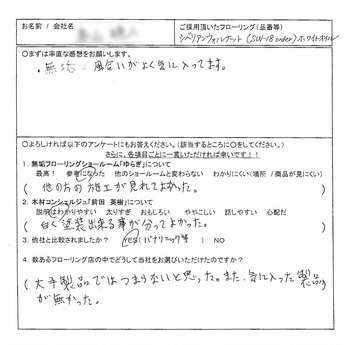 お名前 / 会社名
ご採用頂いたフローリング（品番等）
シベリアンウォルナット（SW-18 order）ホワイトオイル
○まずは率直な感想をお願いします。
・無垢の風合いがよく気に入ってます。
○よろしければ以下のアンケートにもお答えください。（該当するところに○をしてください。）
さらに、各項目ごとに一言いただければ幸いです！！
1. 無垢フローリングショールーム「ゆらぎ」について
最高！ 参考になった 他のショールームと変わらない わかりにくい（場所 / 商品が見にくい）
（ 他の方の施工が見れてよかった。 ）
2. 木村コンシェルジュ「前田 英樹」について
説明はわかりやすい 太りすぎ おもしろい ややこしい 話しやすい 心配だ
（ 白く塗装出来る事が分ってよかった。 ）
3. 他社と比較されましたか？ YES（パナソニック等） NO
4. 数あるフローリング店の中でどうして当社をお選びいただけたのですか？
（ 大手製品ではつまらないと思った。また、気に入った製品
が無かった。 ）